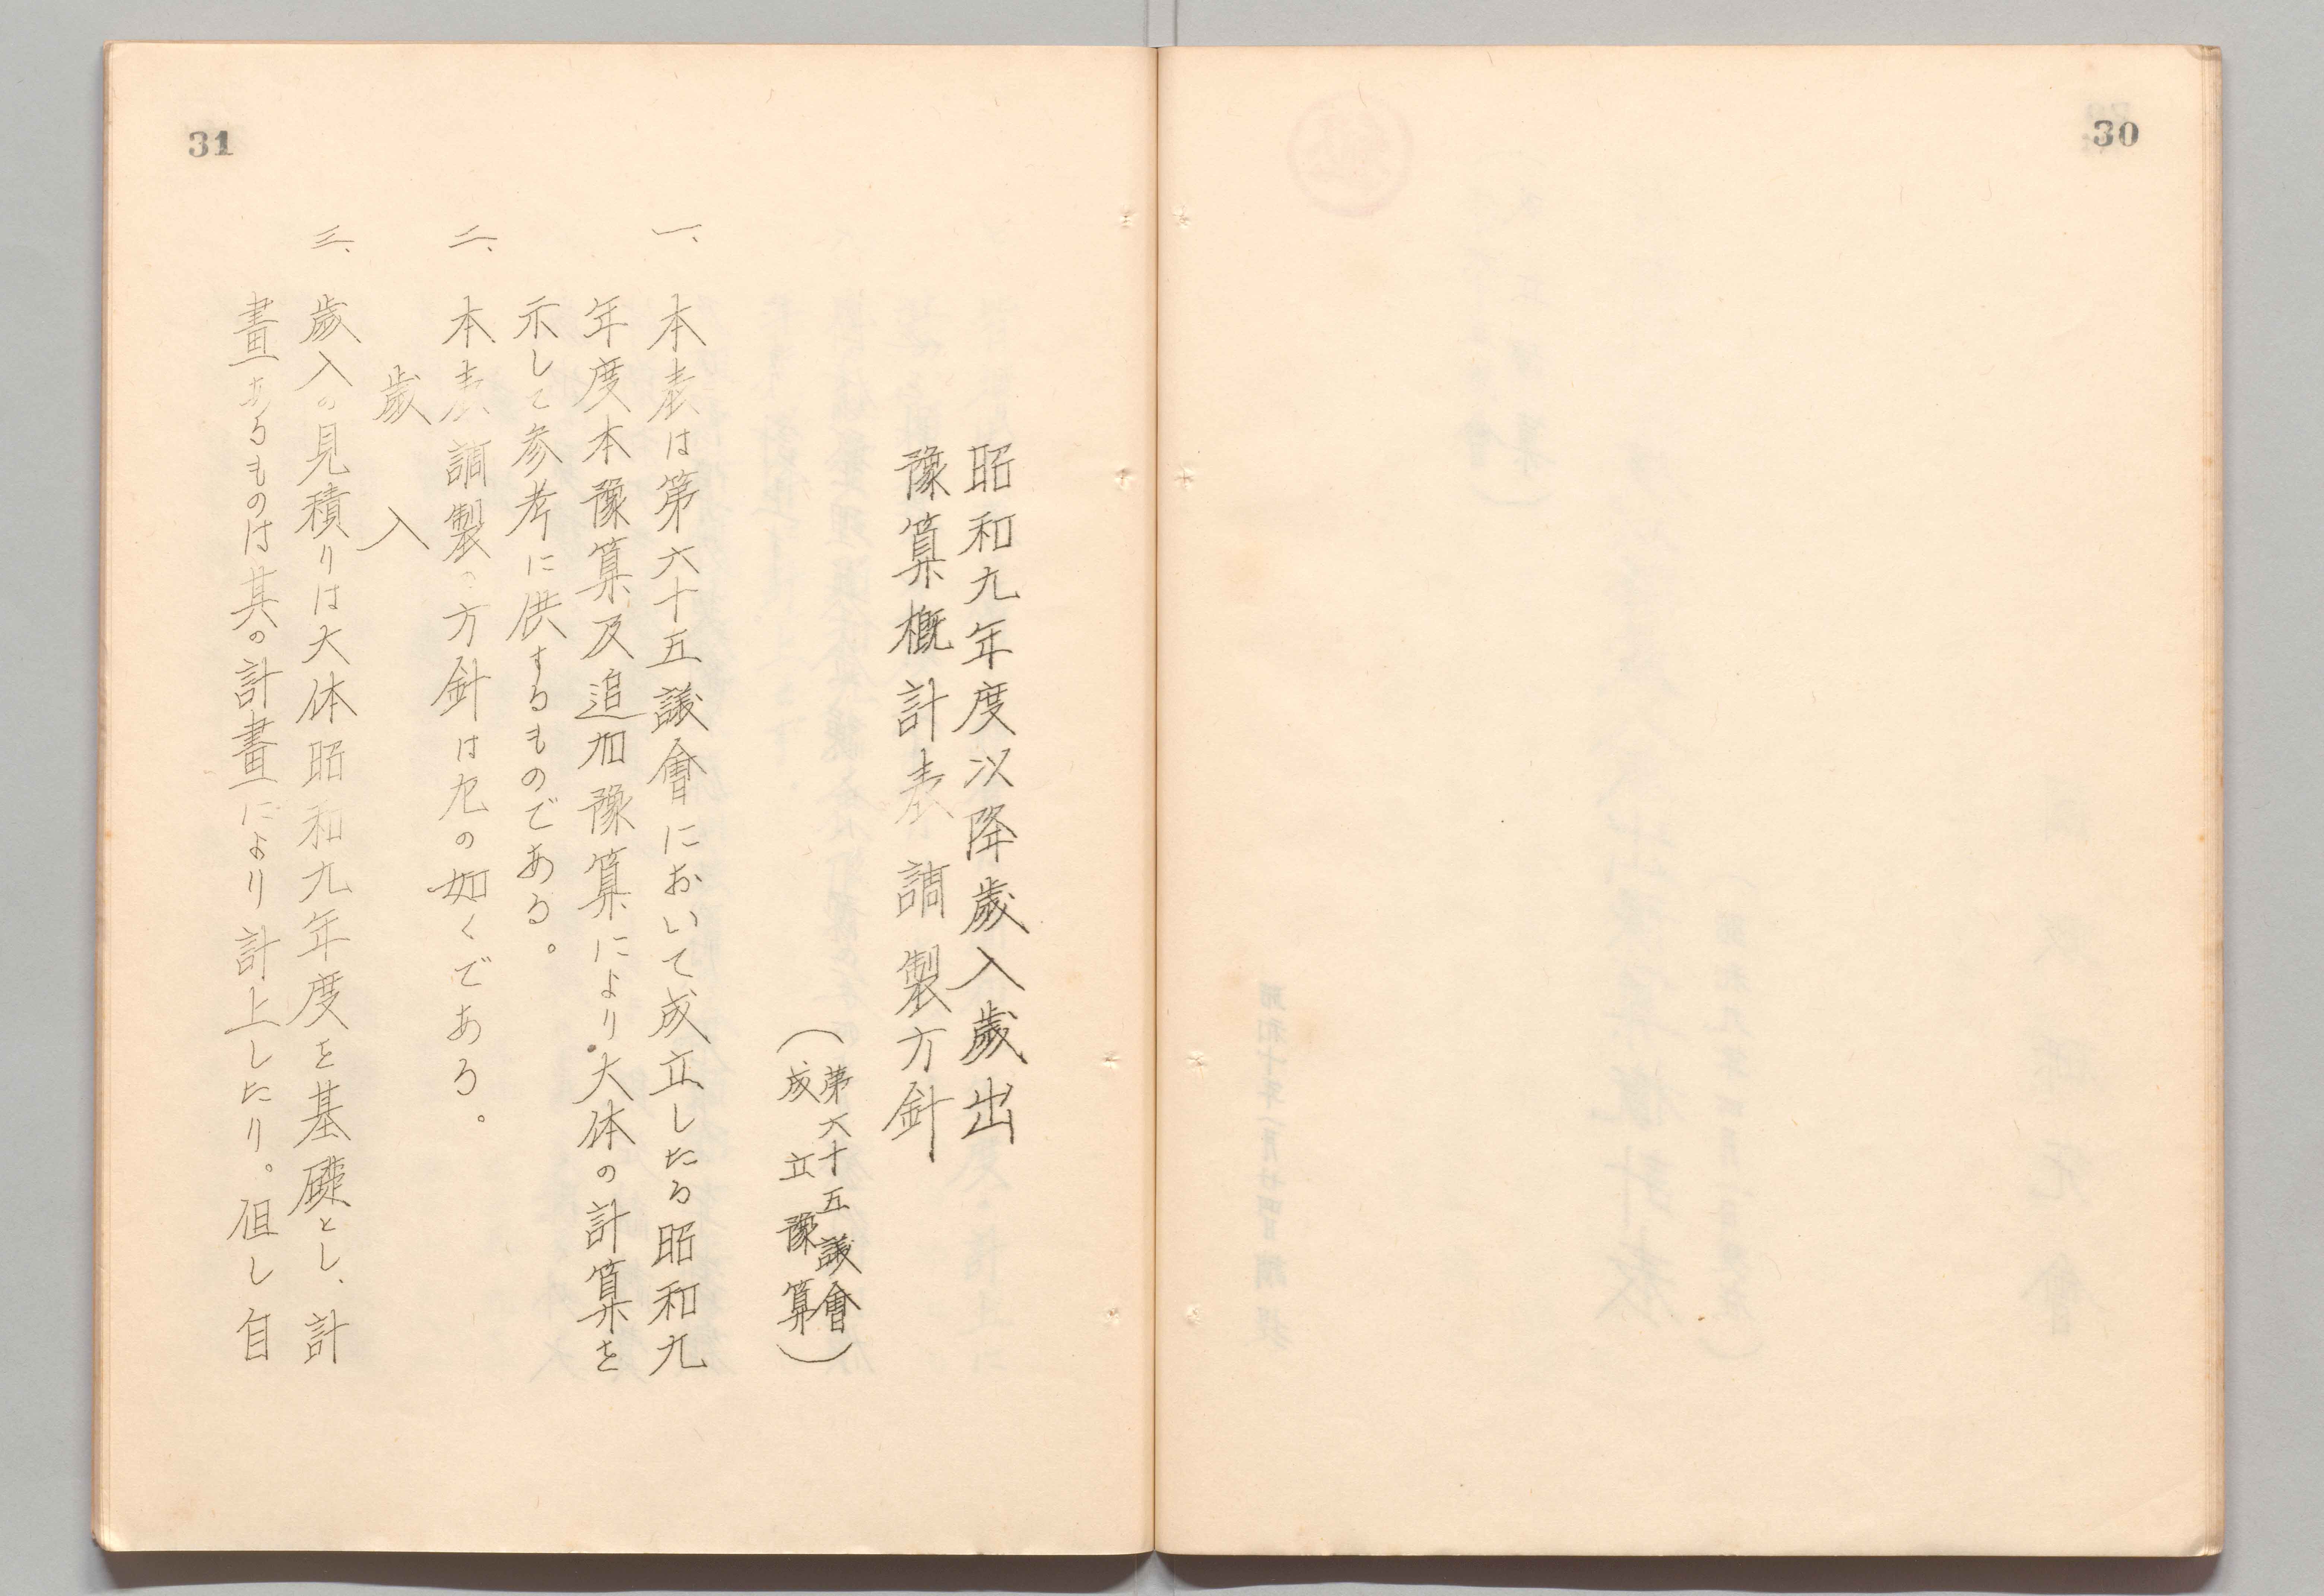 30
31
昭和九年度以降歳入歳出
豫算概計表調製方針
（第六十五議會
成立豫算）
一、本表は第六十五議會において成立したる昭和九
年度本豫算及追加豫算により大体の計算を
示して参考に供するものである。
二、本表調製の方針は左の如くである。
歳入
三、歳入の見積りは大体昭和九年度を基礎とし、計
畫あるものは其の計畫により計上したり。但し自